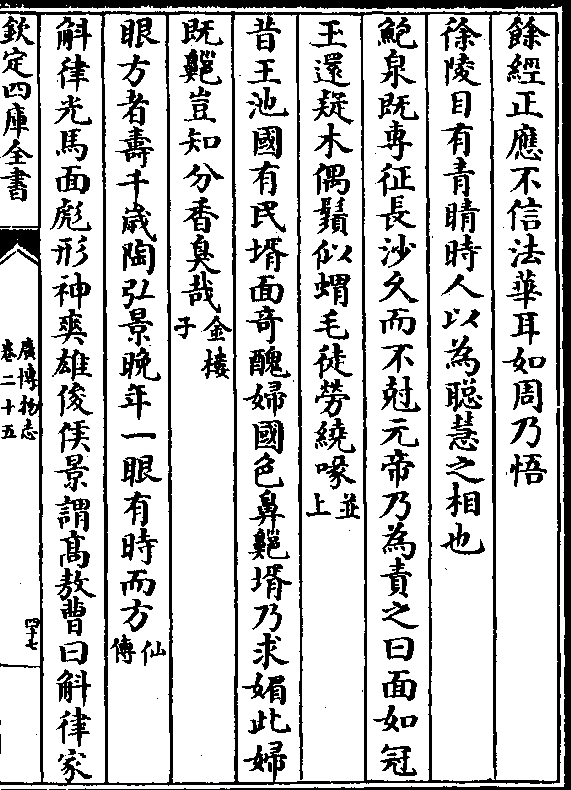 餘經正應不信法華耳如周乃悟
徐陵目有青睛時人以為聰慧之相也
鮑泉既專征長沙久而不尅元帝乃為責之曰面如冠
玉還疑木偶鬚似蝟毛徒勞繞喙並上
昔王池國有民壻面奇醜婦國色鼻齆壻乃求媚此婦
既齆豈知分香臭哉金樓子
眼方者壽千歲陶弘景晚年一眼有時而方仙傳
斛律光馬面彪形神爽雄俊侯景謂高敖曹曰斛律家
欽定四庫全書
廣博物志
卷二十五
四十七